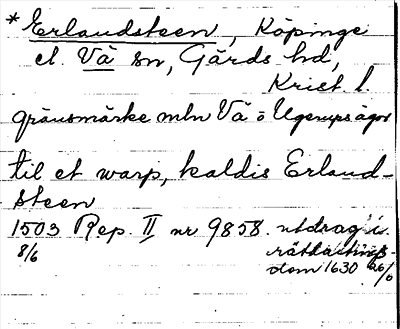 * Erlandsteen, Köpinge
el. Vä sn, Gärds hd,
Krist. l.
gränsmärke mln Vä o Ugerups ägor
til et warp, kaldis Erland-
steen
1503 Rep. II nr 9858. utdrag i
8/6 rättartings-
dom 1630 26/6